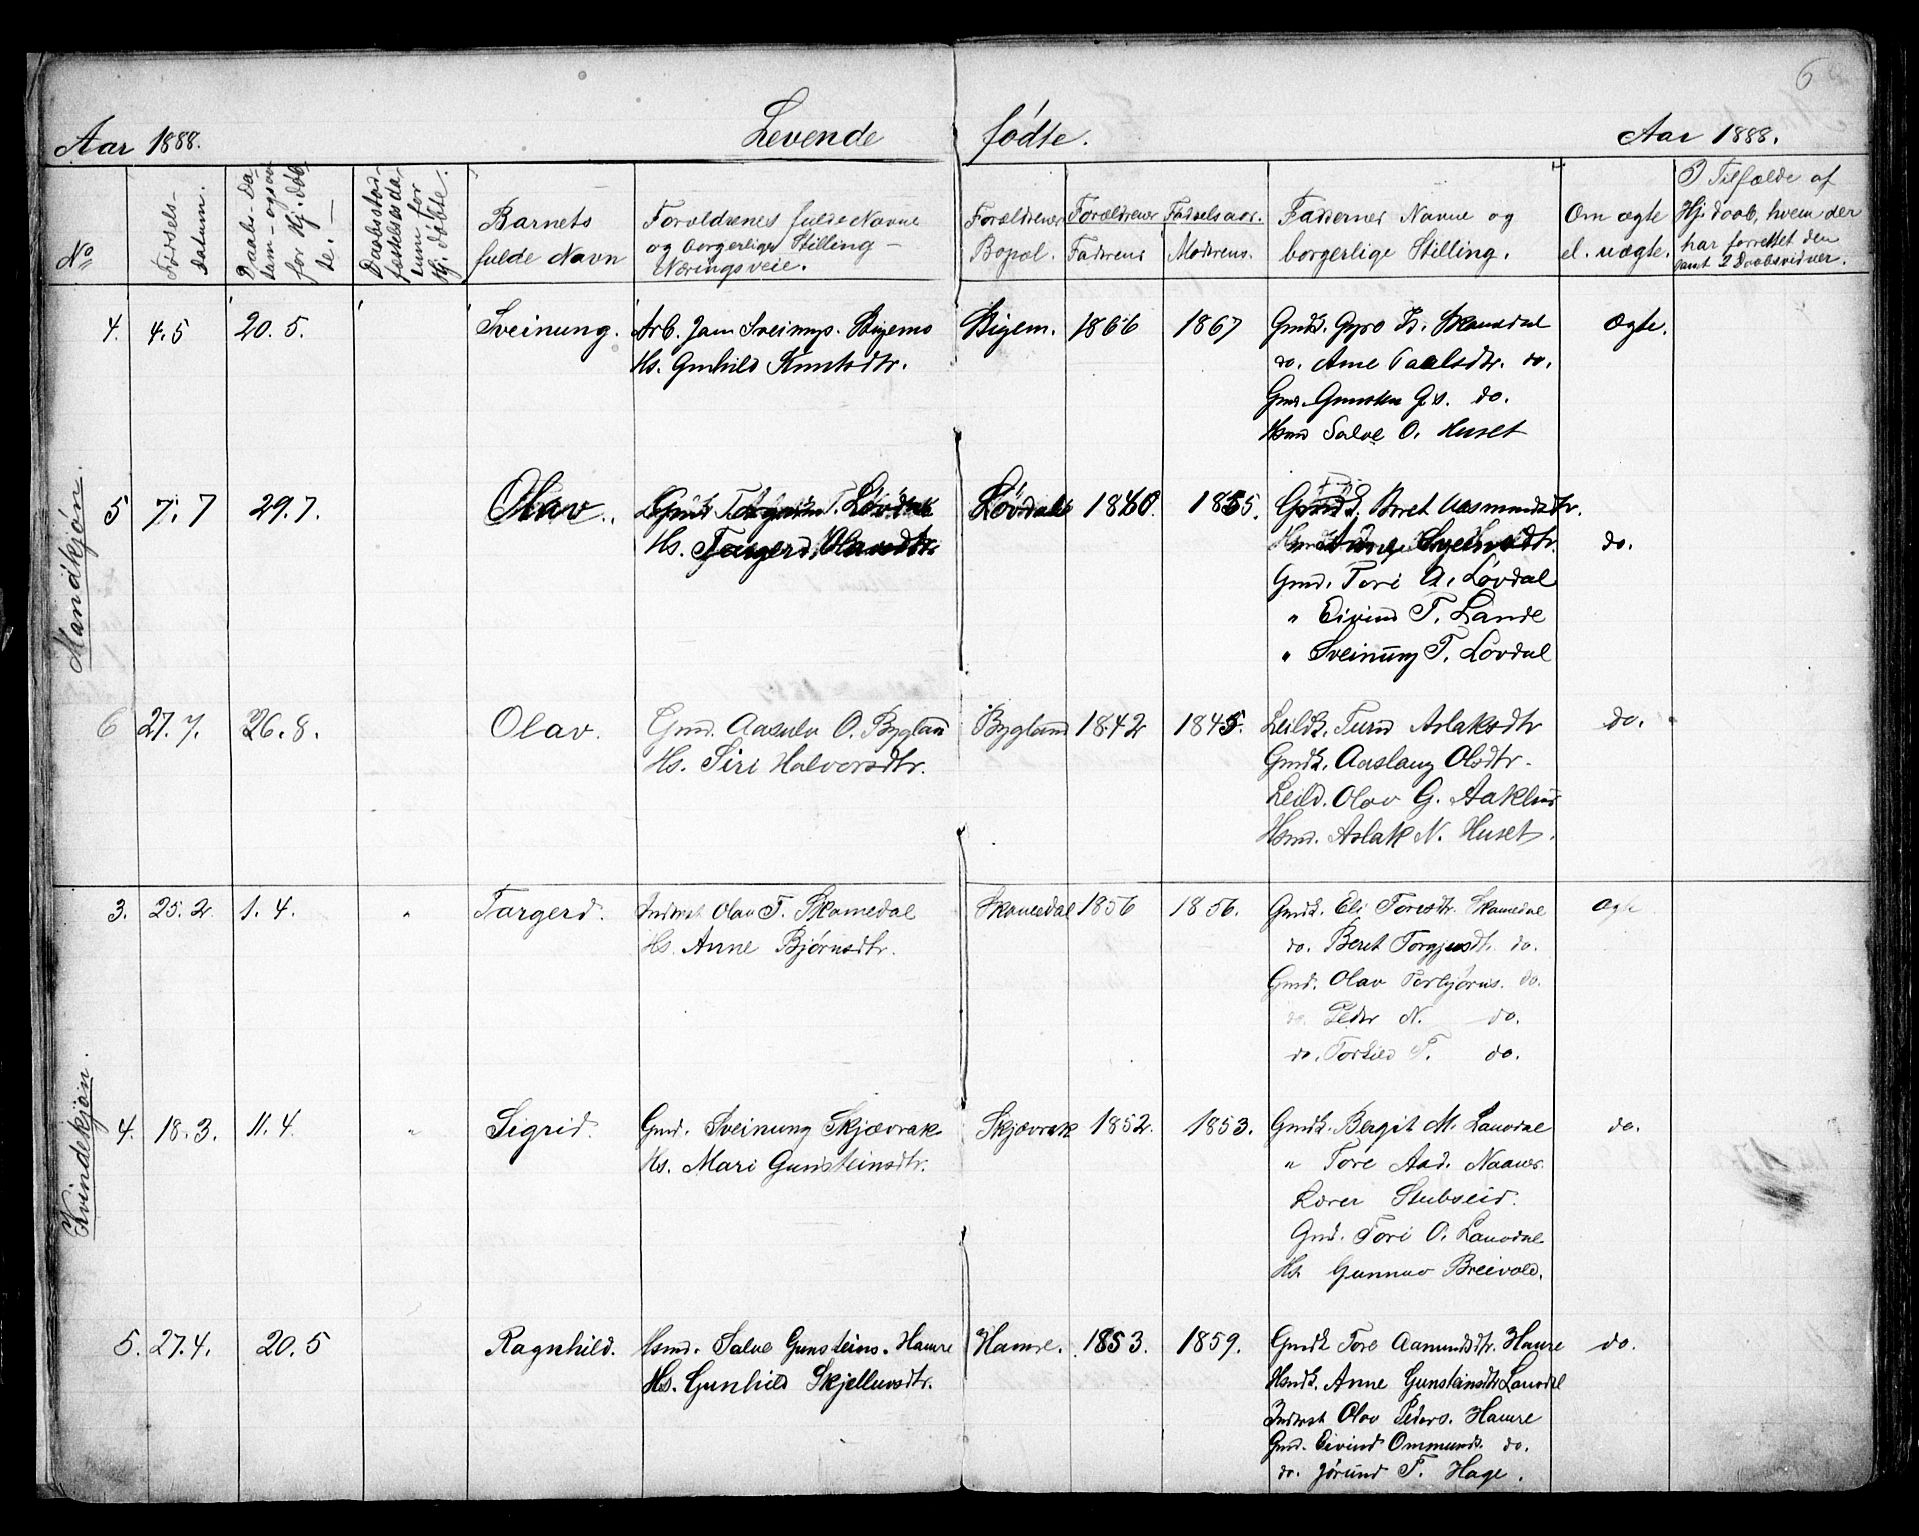 6
Aar 1888. Levende fødte. Aar 1888.
No
Fødsels-
datum.
Daabs-Da-
tum - ogsaa
for Hj. døb
te. -
Daabsstad-
fæstelsesda
tum for
Hj. døbte.
Barnets
fulde Navn
Forældrenes fulde Navne
og borgerlige Stilling -
Næringsveie.
Forældrenes
Bopæl.
Forældrenes Fødselsaar.
Faderens Moderens.
Faddernes Navne og
borgerlige Stilling.
Om ægte
el. uægte.
I Tilfælde af
Hj. daab, hvem der
har forrettet den
samt 2 Daabsvidner.
Mandkjøn.
4. 4.5 20.5. Sveinung. Arb. Jam Sveinngs. Bigemo Bigem. 1866 1867 Gmdk. Gyro Skamedal Ægte.
Hs. Gunhild Knutsdtr. do. Ane Paalsdtr. do.
Gmd. Gunsten G.s. do.
Hsmd Salve O. Huset
5 7.7 29.7. Olav. Gmd. T. Løvdal Løvdal 1860. 1855. Gmdk. Beret Aasmundsdtr.
Hs. Targerd Olavsdtr. Sveinsdtr. do.
Gmd. Tore A. Løvdal
" Eivind T. Lande
" Sveinung T. Løvdal
6 27.7. 26.8. Olav. Gmd. Aasulv O. Bygland Bygland 1842 1845. Leildk. Turid Aslaksdtr do.
Hs. Siri Halvorsdtr. Gmdk. Aaslaug Olsdtr.
Leild. Olav G. Aaklund
Hsmd. Aslak N. Huset.
Kvindekjøn.
3. 25.2 1.4. " Targerd. Inderst Olav T. Skamedal Skamedal 1856 1856. Gmdk. Eli Toresdtr. Skamedal Ægte
Hs. Anne Bjørnsdtr. do. Beret Torgjusdt. do.
Gmd. Olav Torbjørns. do.
do. Peder N. do.
do. Torkild T. do.
4. 18.3. 11.4 " Sigrid. Gmd. Sveinung Skjævrak Skjævrak 1852. 1853. Gmdk. Bergit M. Lauvdal do.
Hs. Mari Gunsteinsdtr. " Tore Aad. Naanes
Lærer Stubseid.
Gmd. Tore O. Lauvdal
Hs. Gunnar Breivold.
5. 27.4. 20.5 Ragnhild. Hsmd. Salve Gunsteins. Hamre Hamre. 1853. 1859. Gmdk Tore Aamundsdtr. Hamre do.
Hs. Gunhild Skjellumsdtr. Hsmdk. Anne Gunsteinsdtr Lauvdal
Inderst Olav Peders. Hamre
Gmd. Eivind Ommunds. do.
do. Jørund T. Hage.